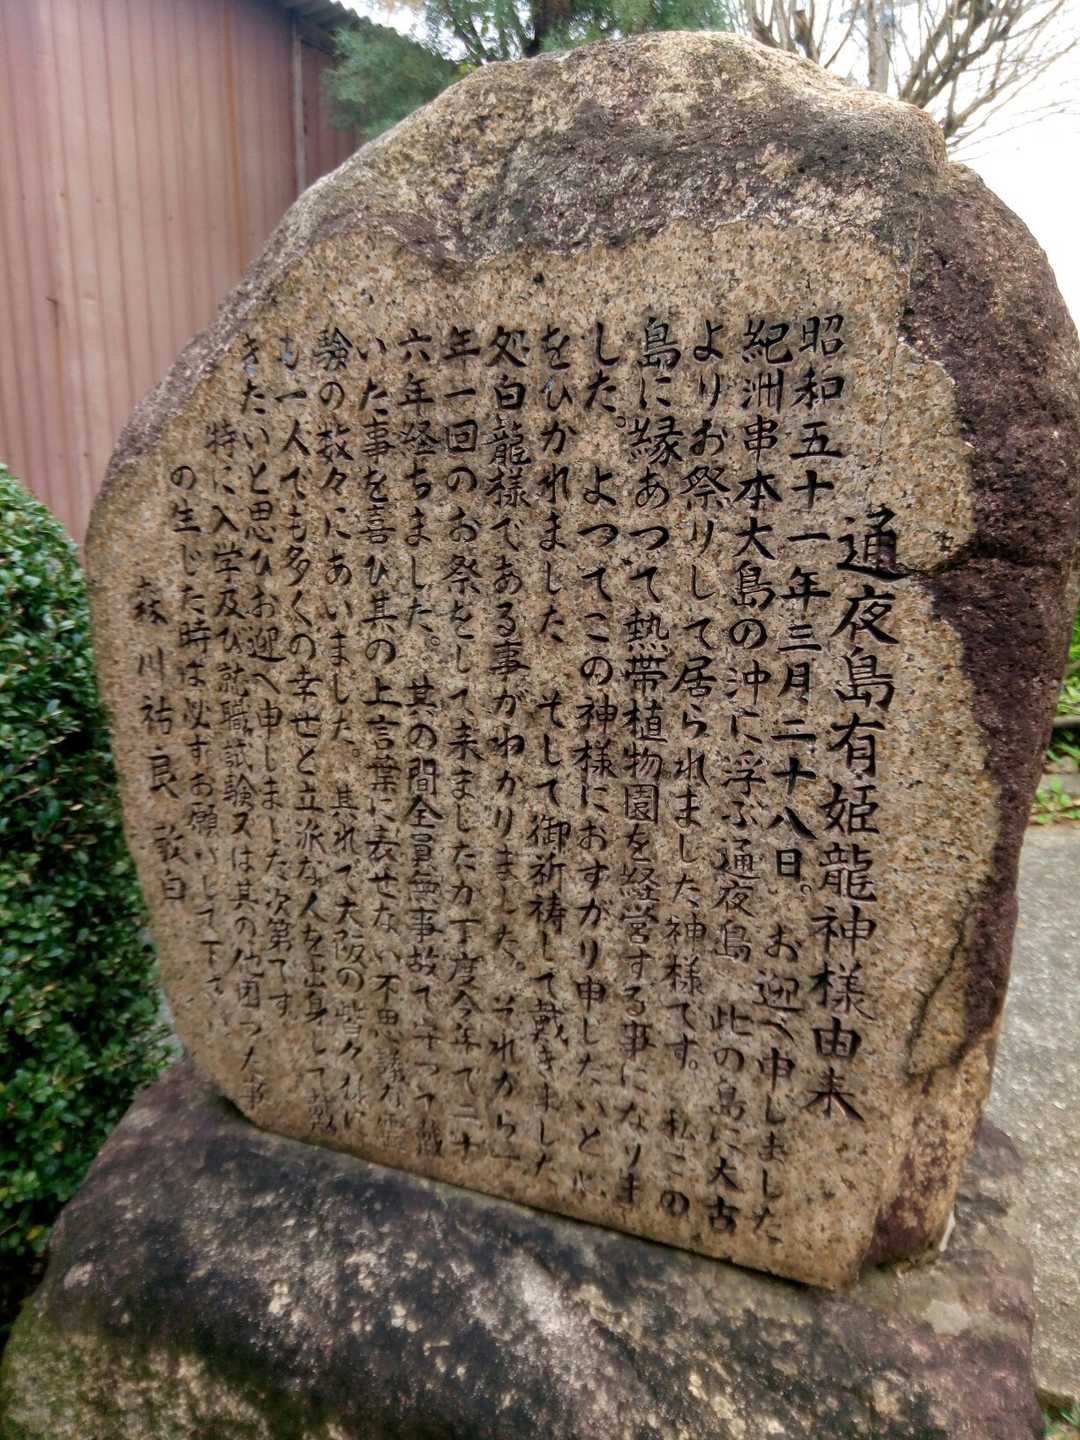 通夜島有姫龍神様由来
昭和五十一年三月二十八日。お迎へ申しました
紀洲串本大島の沖に浮ぶ通夜島、此の島に大古
よりお祭りして居られました神様です。私この
島に縁あつて熱帯植物園を経営する事になりま
した。よつてこの神様におすがり申したいと
をひかれました そして御祈祷して戴きました
処白龍様である事がわかりました。それから一
年一回のお祭をして来ましたが丁度今年で二十
六年経ちました。其の間全員無事故で守つて戴
いた事を喜び其の上言葉に表せない不思議な霊
験の数々にあいました。其れで大阪の皆々様に
も一人でも多くの幸せと立派な人を出身して戴
きたいと思ひお迎へ申しました次第です
特に入学及び就職試験又は其の他困つた事
の生じた時は必ずお願いして下さい
森川祐良 敬白